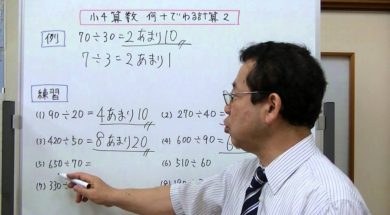 小4算数 何十でわる計算2
例 70÷30=2あまり10
7÷3=2あまり1
練習
(1) 90÷20=4あまり10 (2) 270÷40=
(3) 420÷50=8あまり20 (4) 600÷90=6
(5) 650÷70= (6) 510÷60
(7) 330÷